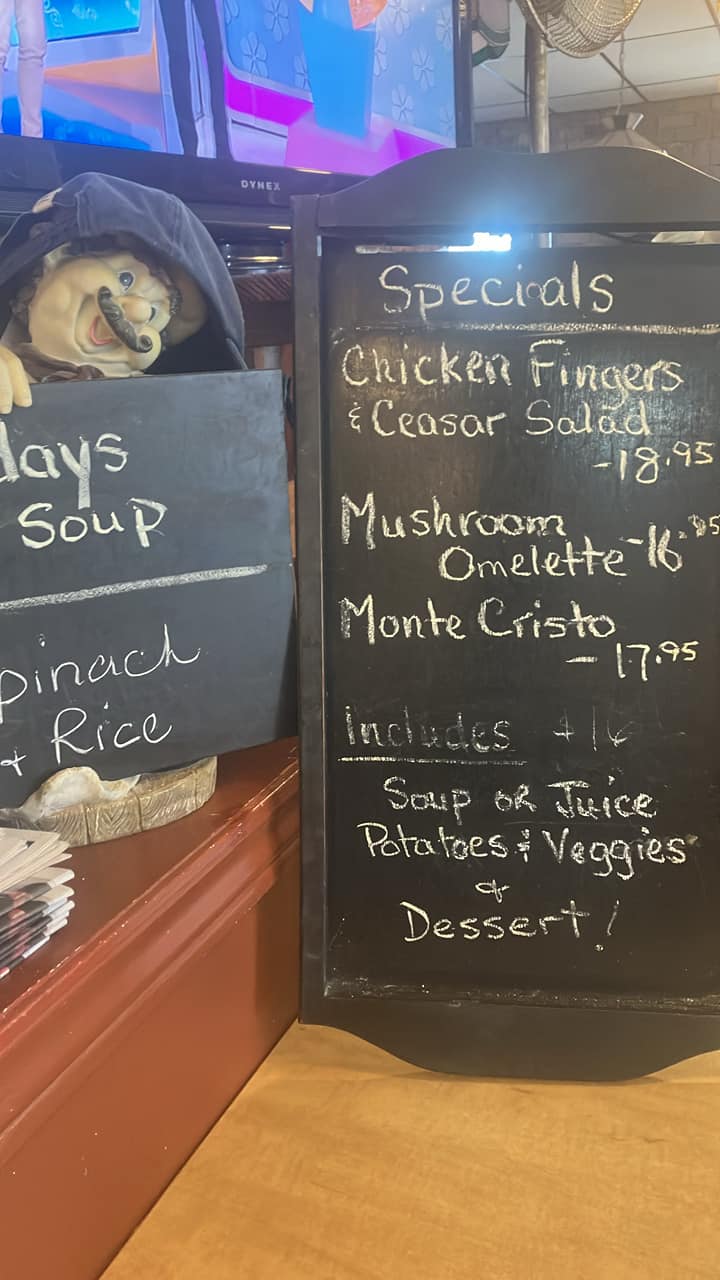 DYNEX
days
Soup
pinach
+ Rice
Specials
Chicken Fingers
& Ceasar Salad
-18.95
Mushroom
Omelette -16.95
Monte Cristo
- 17.95
Includes
Soup or Juice
Potatoes & Veggies
&
Dessert!